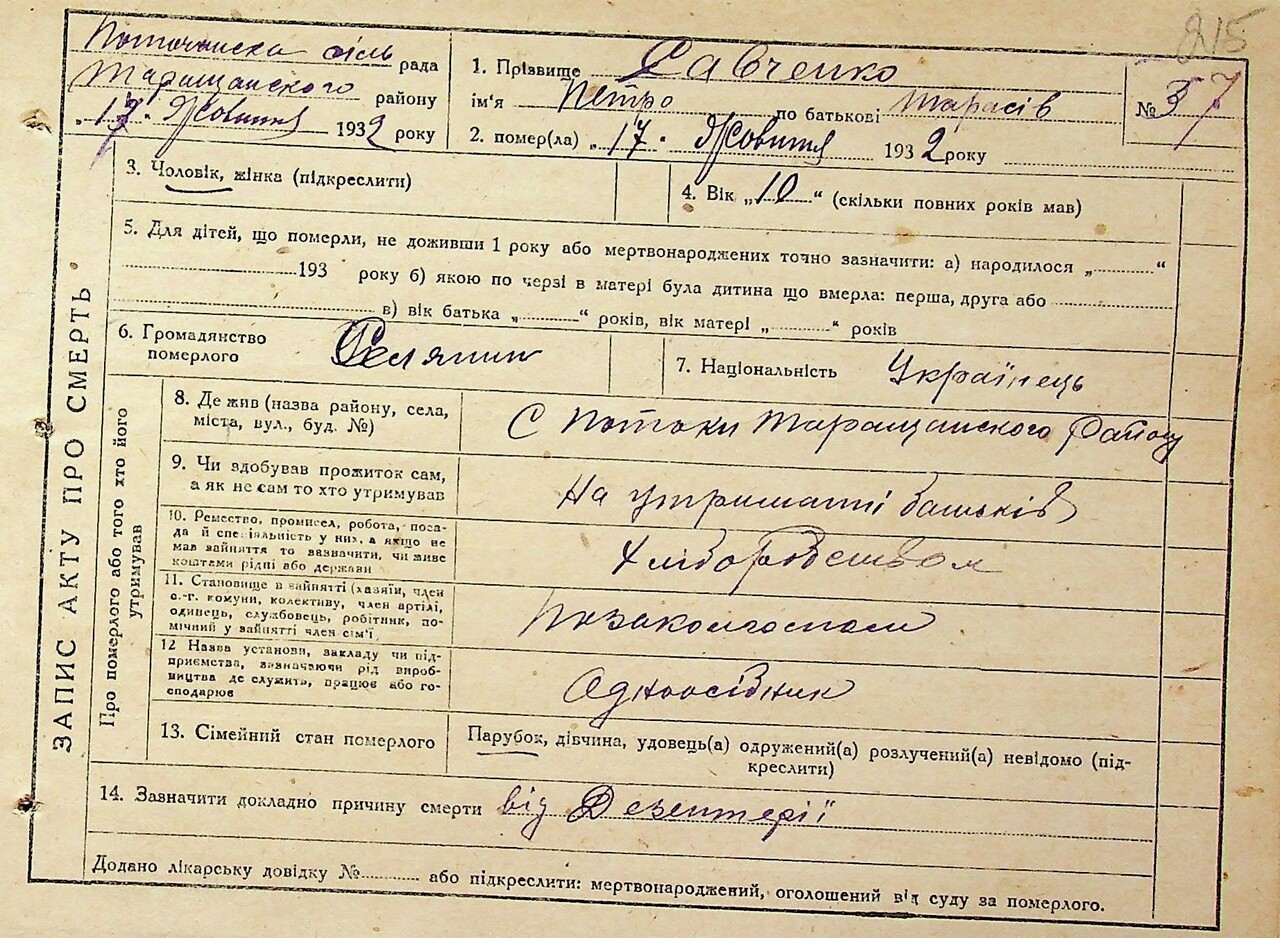 215
Поточанска сільрада
Таращанского району
„17. Жовтня 1932 року
1. Прізвище Савченко
ім'я Петро по батькові Тарасів
№ 37
2. помер(ла) „17. Жовтня 1932 року
ЗАПИС АКТУ ПРО СМЕРТЬ
3. Чоловік, жінка (підкреслити)
4. Вік „10“ (скільки повних років мав)
5. Для дітей, що померли, не доживши 1 року або мертвонароджених точно зазначити: а) народилося „..........“
193 року б) якою по черзі в матері була дитина що вмерла: перша, друга або
в) вік батька „..........“ років, вік матері „..........“ років
6. Громадянство
померлого
Селянин
7. Національність Українець
Про померлого або того хто його
утримував
8. Де жив (назва району, села,
міста, вул., буд. №)
С Потоки Таращанского Району
9. Чи здобував прожиток сам,
а як не сам то хто утримував
На утриматті батьків
10. Ремество, промисел, робота, поса-
да й спеціяльність у них, а якщо не
мав зайняття то зазначити, чи живе
коштами рідні або держави
Хліборобством
11. Становище в зайнятті (хазяїн, член
с.-г. комуни, колективу, член артілі,
одинець, службовець, робітник, по-
мічний у зайнятті член сім'ї
Позаколгоспом
12 Назва установи, закладу чи під-
приємства, зазначаючи рід вироб-
ництва де служить, працює або го-
сподарює
Одноосібник
13. Сімейний стан померлого
Парубок, дівчина, удовець(а) одружений(а) розлучений(а) невідомо (під-
креслити)
14. Зазначити докладно причину смерти від Дезентерії
Додано лікарську довідку №.......... або підкреслити: мертвонароджений, оголошений від суду за померлого.